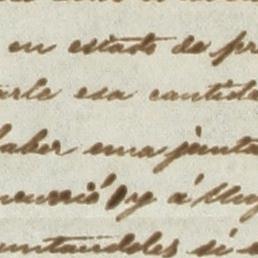 en estado de pr
arle esa cantida
haber una junta
ncurrió y á Mig
untandoles si e